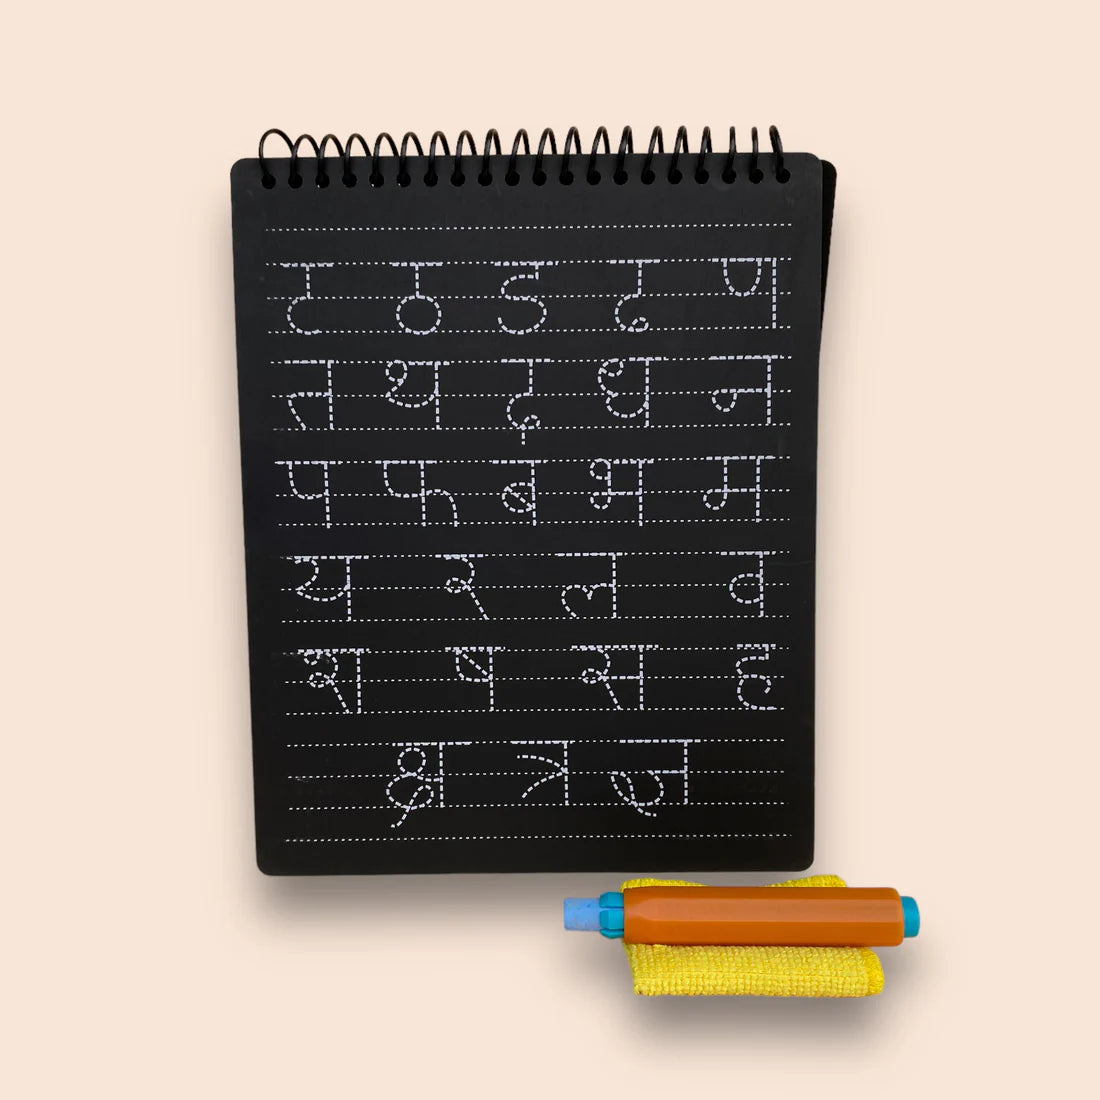 ट ठ ड ढ ण
त थ द ध न
प फ ब भ म
य र ल व
श ष स ह
क्ष त्र ज्ञ